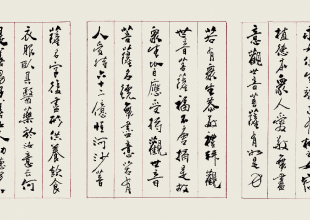 植德本衆人愛敬無盡
意觀世音菩薩有如是力
若有衆生恭敬禮拜觀
世音菩薩福不唐捐是故
衆生皆應受持觀世音
菩薩名號無盡意若有
人受持六十二億恒河沙菩
薩名字復盡形供養飲食
衣服臥具醫藥於汝意云何